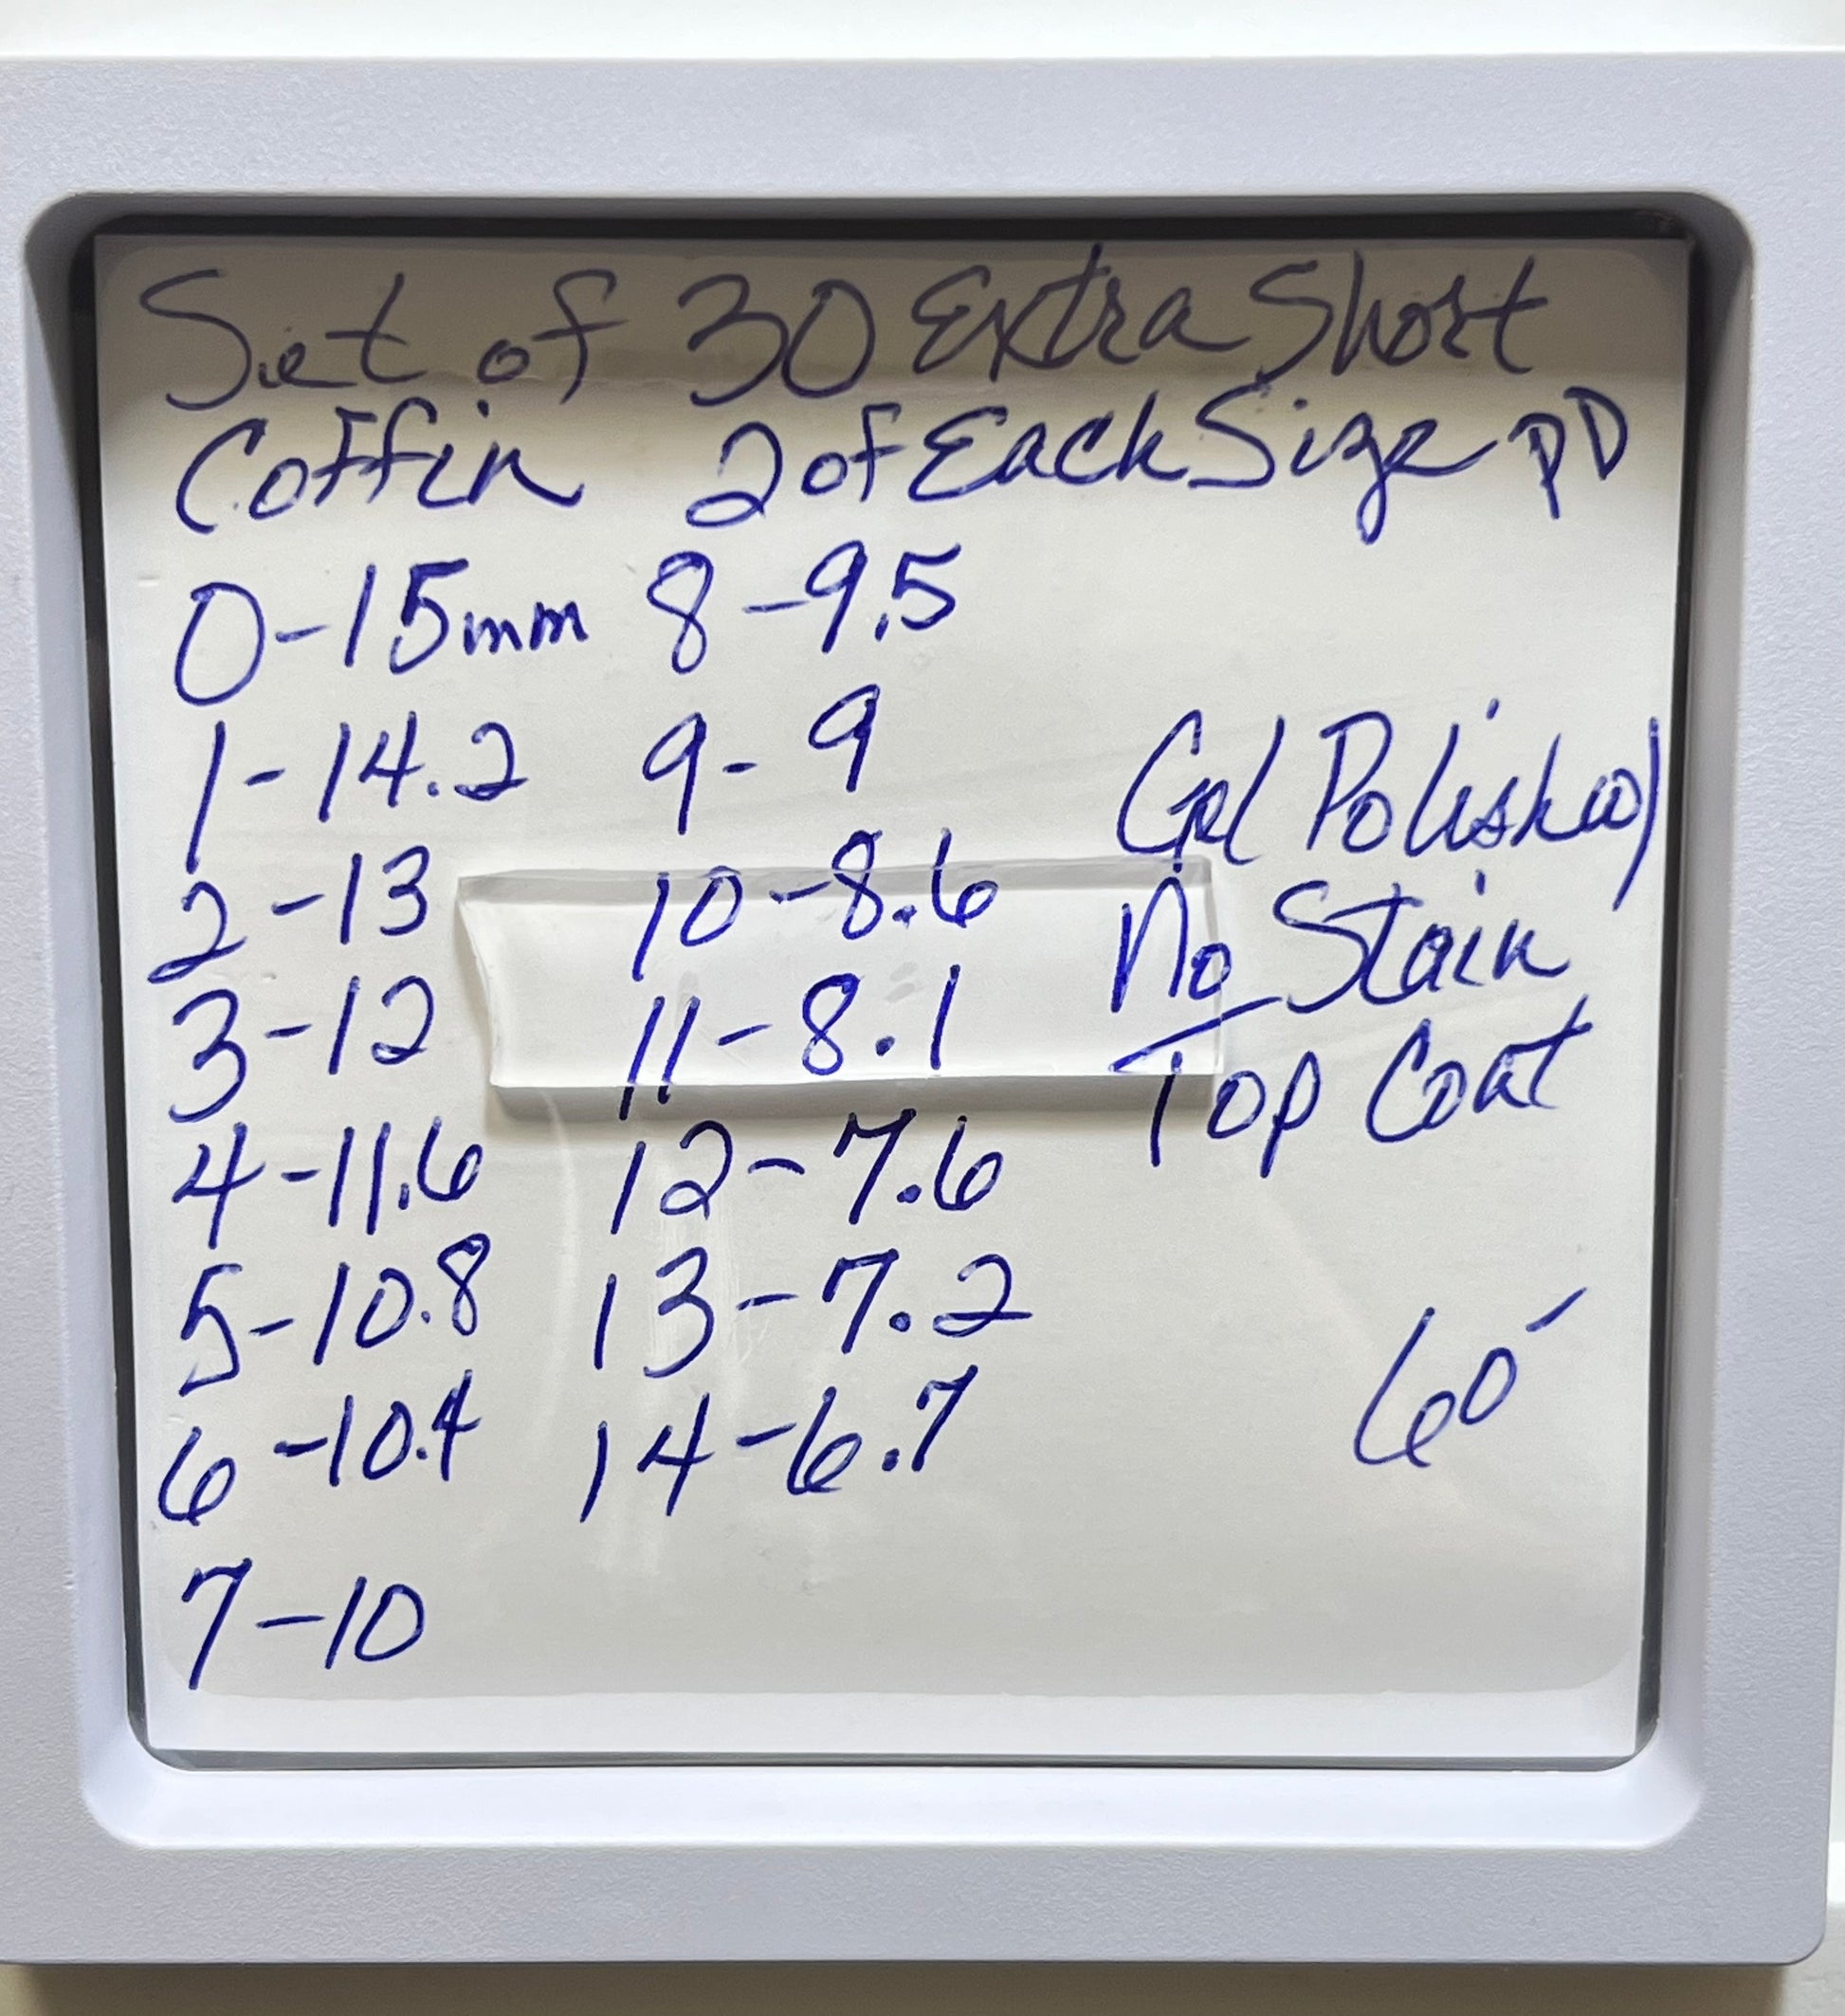 Set of 30 Extra Short
Coffin 2 of Each Size PD
0-15mm 8-9.5
1-14.2 9-9
2-13 10-8.6
3-12 11-8.1
4-11.6 12-7.6
5-10.8 13-7.2
6-10.4 14-6.7
7-10
Gel Polish w/
No Stain
Top Coat
60